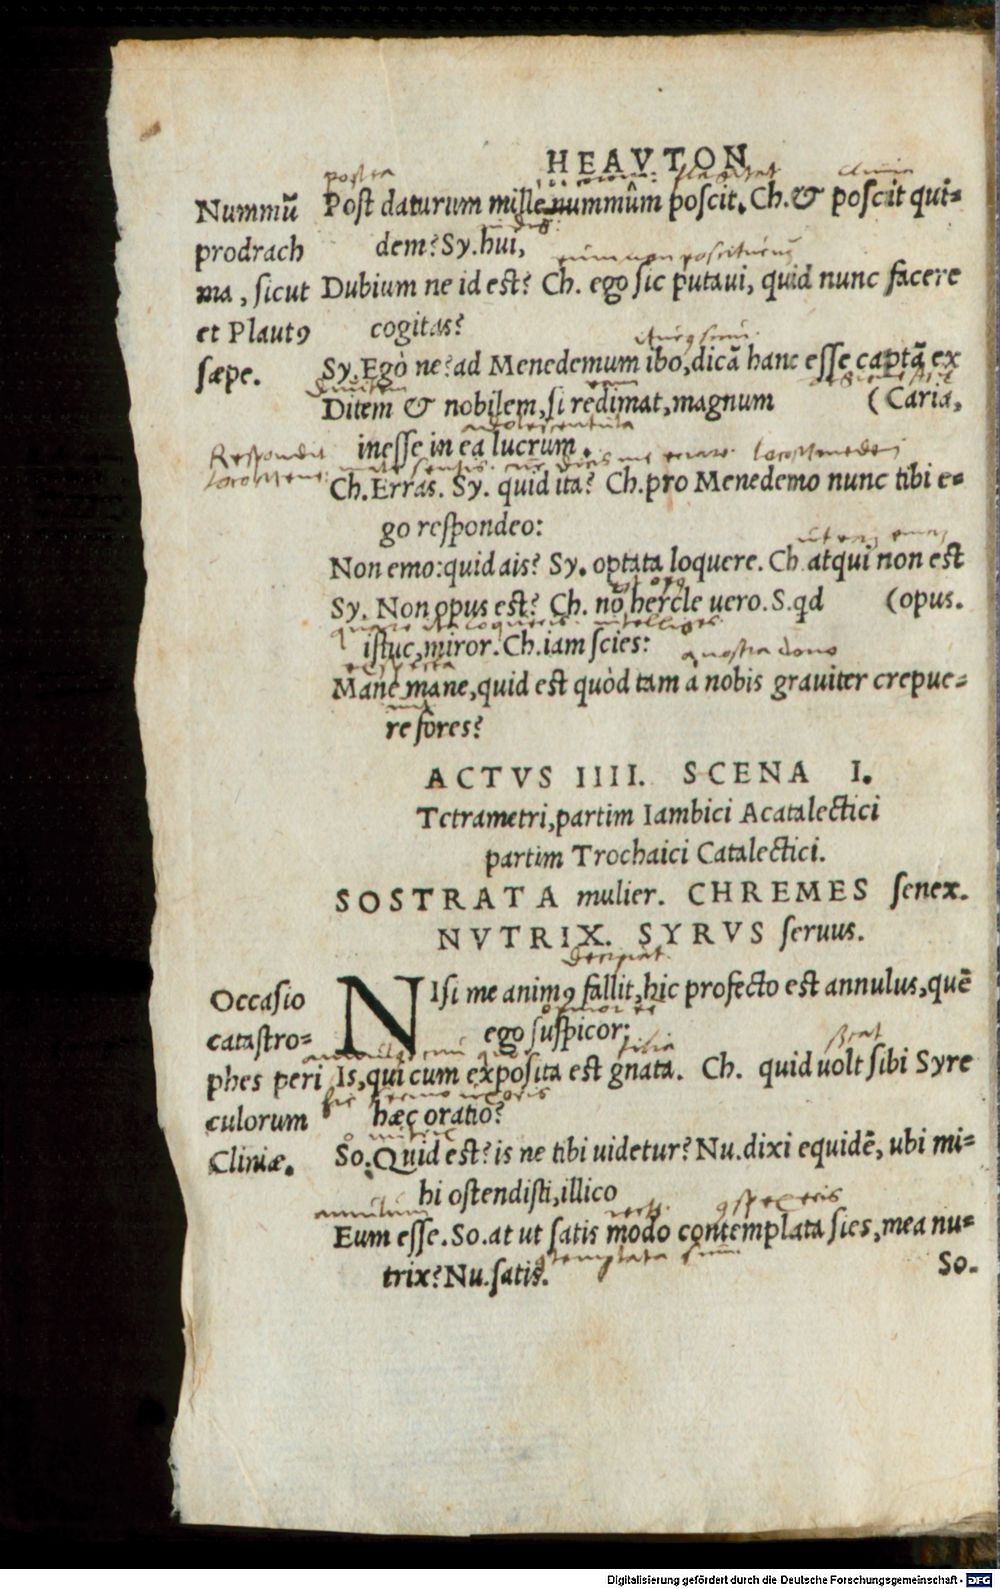 HEAVTON
postea
Nummũ
prodrach
ma, ſicut
et Plautꝯ
ſæpe.
Poſt daturum mille nummûm poſcit. Ch. & poſcit qui-
dem? Sy. hui,
Dubium ne id eſt? Ch. ego ſic putaui, quid nunc facere
cogitas?
Sy. Egò ne? ad Menedemum ibo, dicã hanc eſſe captã ex
Ditem & nobilem, ſi redimat, magnum (Caria,
adoleſcentula
ineſſe in ea lucrum.
Respondit
Ch. Erras. Sy. quid ita? Ch. pro Menedemo nunc tibi e-
go reſpondeo:
Non emo: quid ais? Sy. optata loquere. Ch. atqui non eſt
Sy. Non opus eſt? Ch. nõ hercle uero. S. qd (opus.
intelliges
iſtuc, miror. Ch. iam ſcies:
a nostra domo
Mane mane, quid eſt quòd tam à nobis grauiter crepue-
re fores?
ACTVS IIII. SCENA I.
Tetrametri, partim Iambici Acatalectici
partim Trochaici Catalectici.
SOSTRATA mulier. CHREMES ſenex.
NVTRIX. SYRVS ſeruus.
Occaſio
cataſtro-
phes peri
culorum
Cliniæ.
decipiat
NIſi me animꝯ fallit, hic profecto eſt annulus, quẽ
ego ſuſpicor:
filia
Is, qui cum expoſita eſt gnata. Ch. quid uolt ſibi Syre
hæc oratio?
So. Quid eſt? is ne tibi uidetur? Nu. dixi equidẽ, ubi mi-
hi oſtendiſti, illico
annulum
Eum eſſe. So. at ut ſatis modo contemplata ſies, mea nu-
trix? Nu. ſatis.
So.
Digitalisierung gefördert durch die Deutsche Forschungsgemeinschaft - DFG